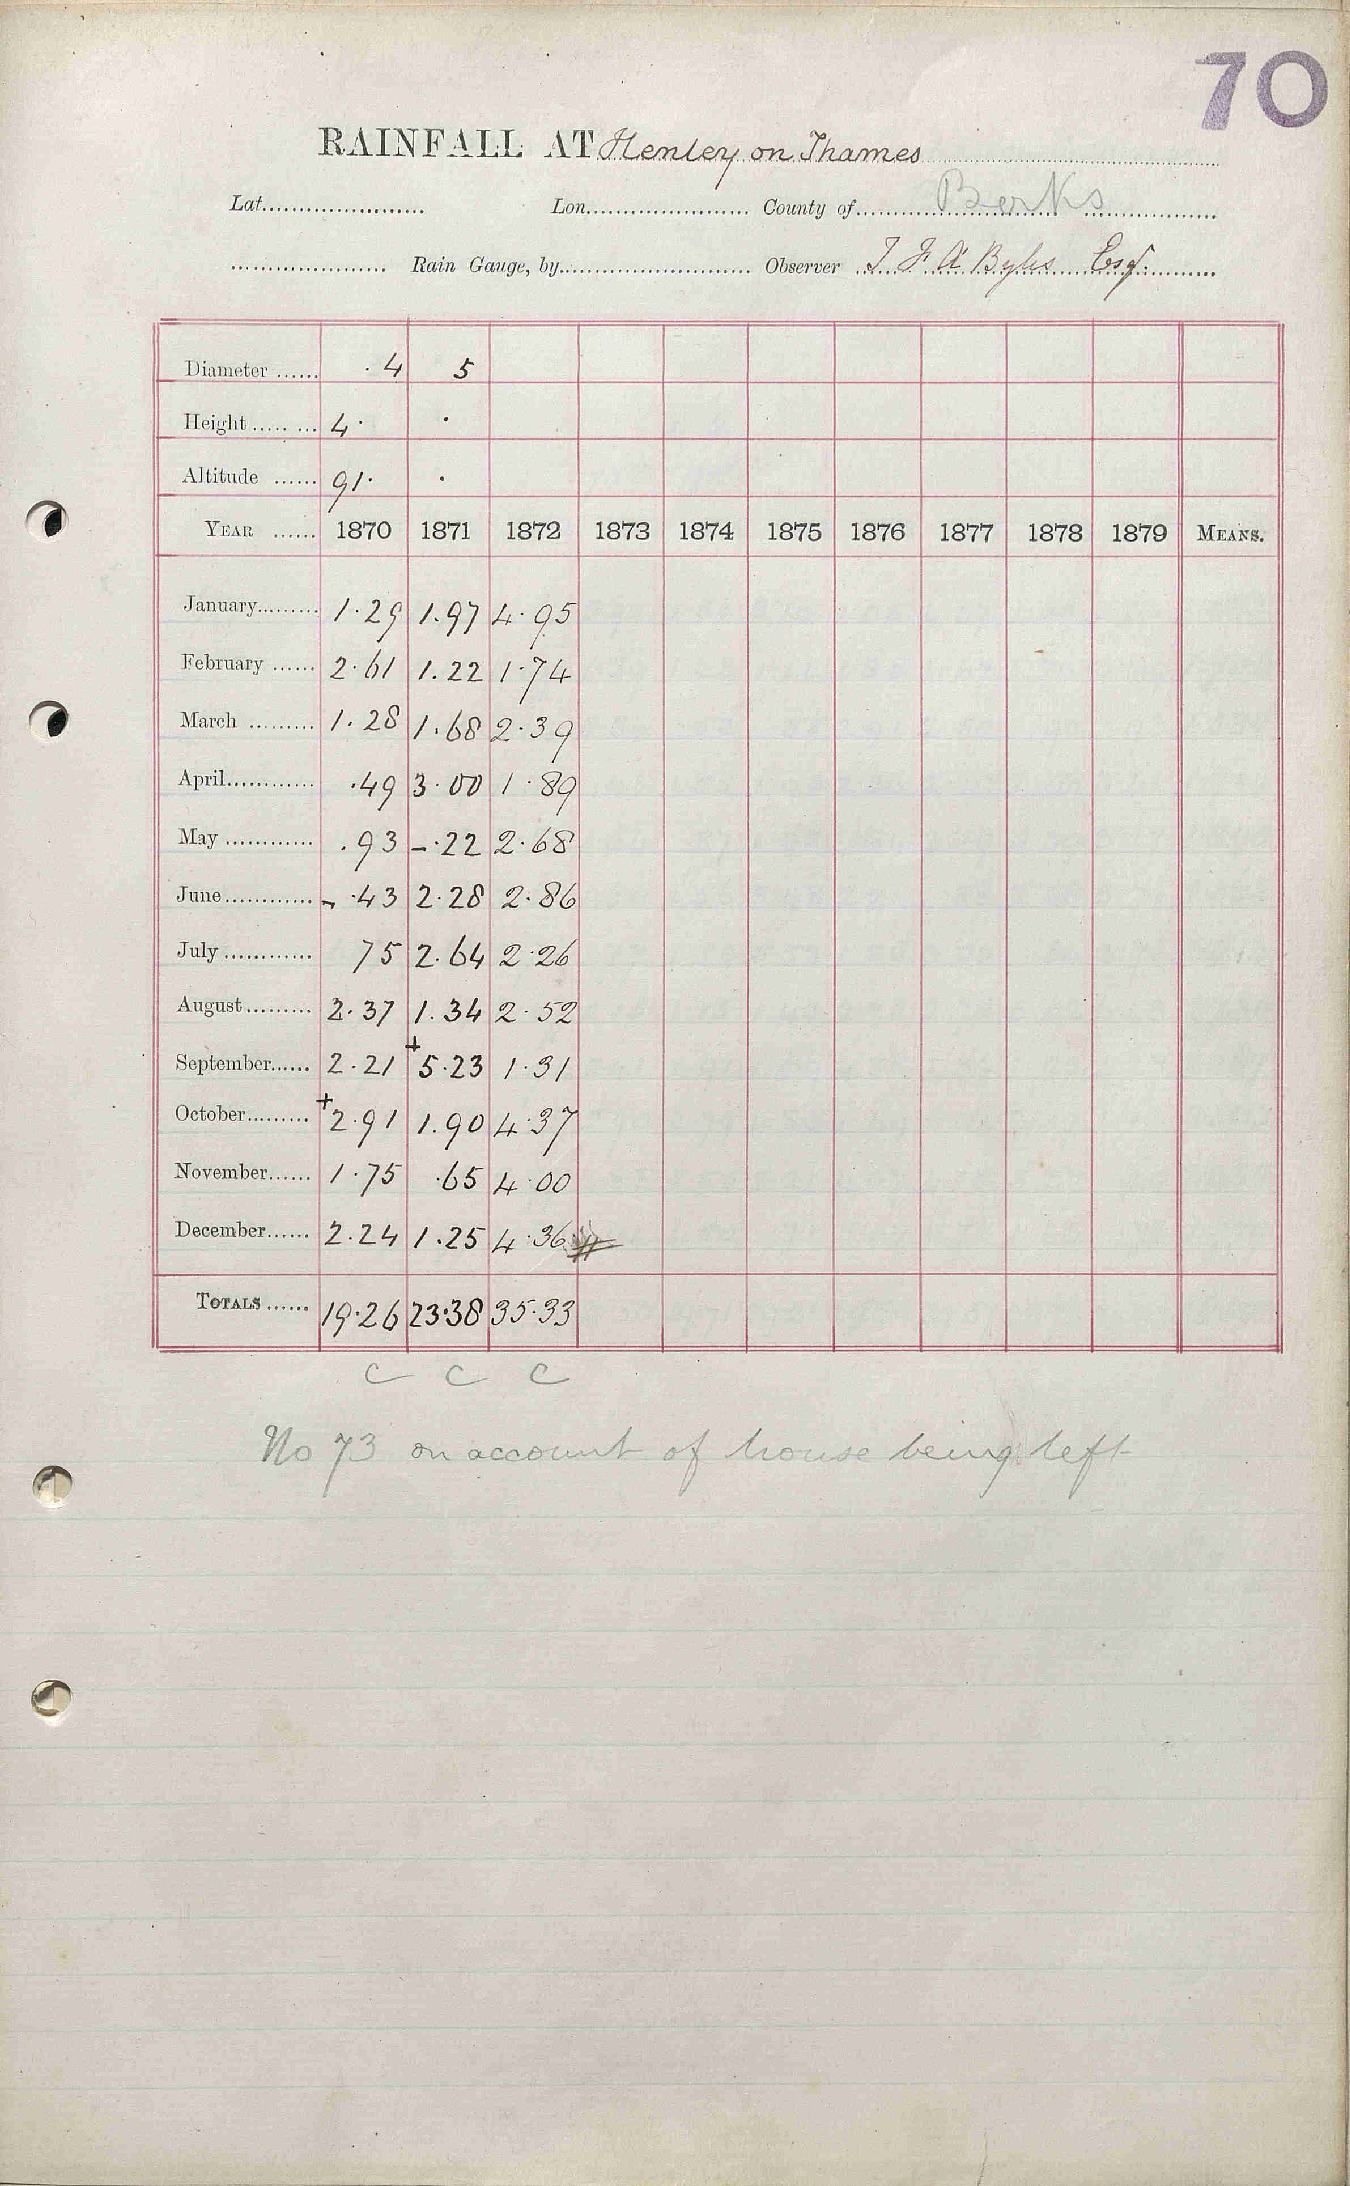 70
RAINFALL AT Henley on Thames
Lat. Lon. County of Berks
Rain Gauge, by Observer T F A Byles Esq.
Diameter ...... .4 5
Height ........ 4. .
Altitude ...... 91. .
YEAR ...... 1870 1871 1872 1873 1874 1875 1876 1877 1878 1879 MEANS.
January......... 1.29 1.97 4.95
February ...... 2.61 1.22 1.74
March ......... 1.28 1.68 2.39
April............ .49 3.00 1.89
May ............ .93 -.22 2.68
June............ - .43 2.28 2.86
July ............ 75 2.64 2.26
August......... 2.37 1.34 2.52
September...... 2.21 +5.23 1.31
October......... +2.91 1.90 4.37
November...... 1.75 .65 4.00
December...... 2.24 1.25 4.36
TOTALS ...... 19.26 23.38 35.33
C C C
No 73 on account of house being left